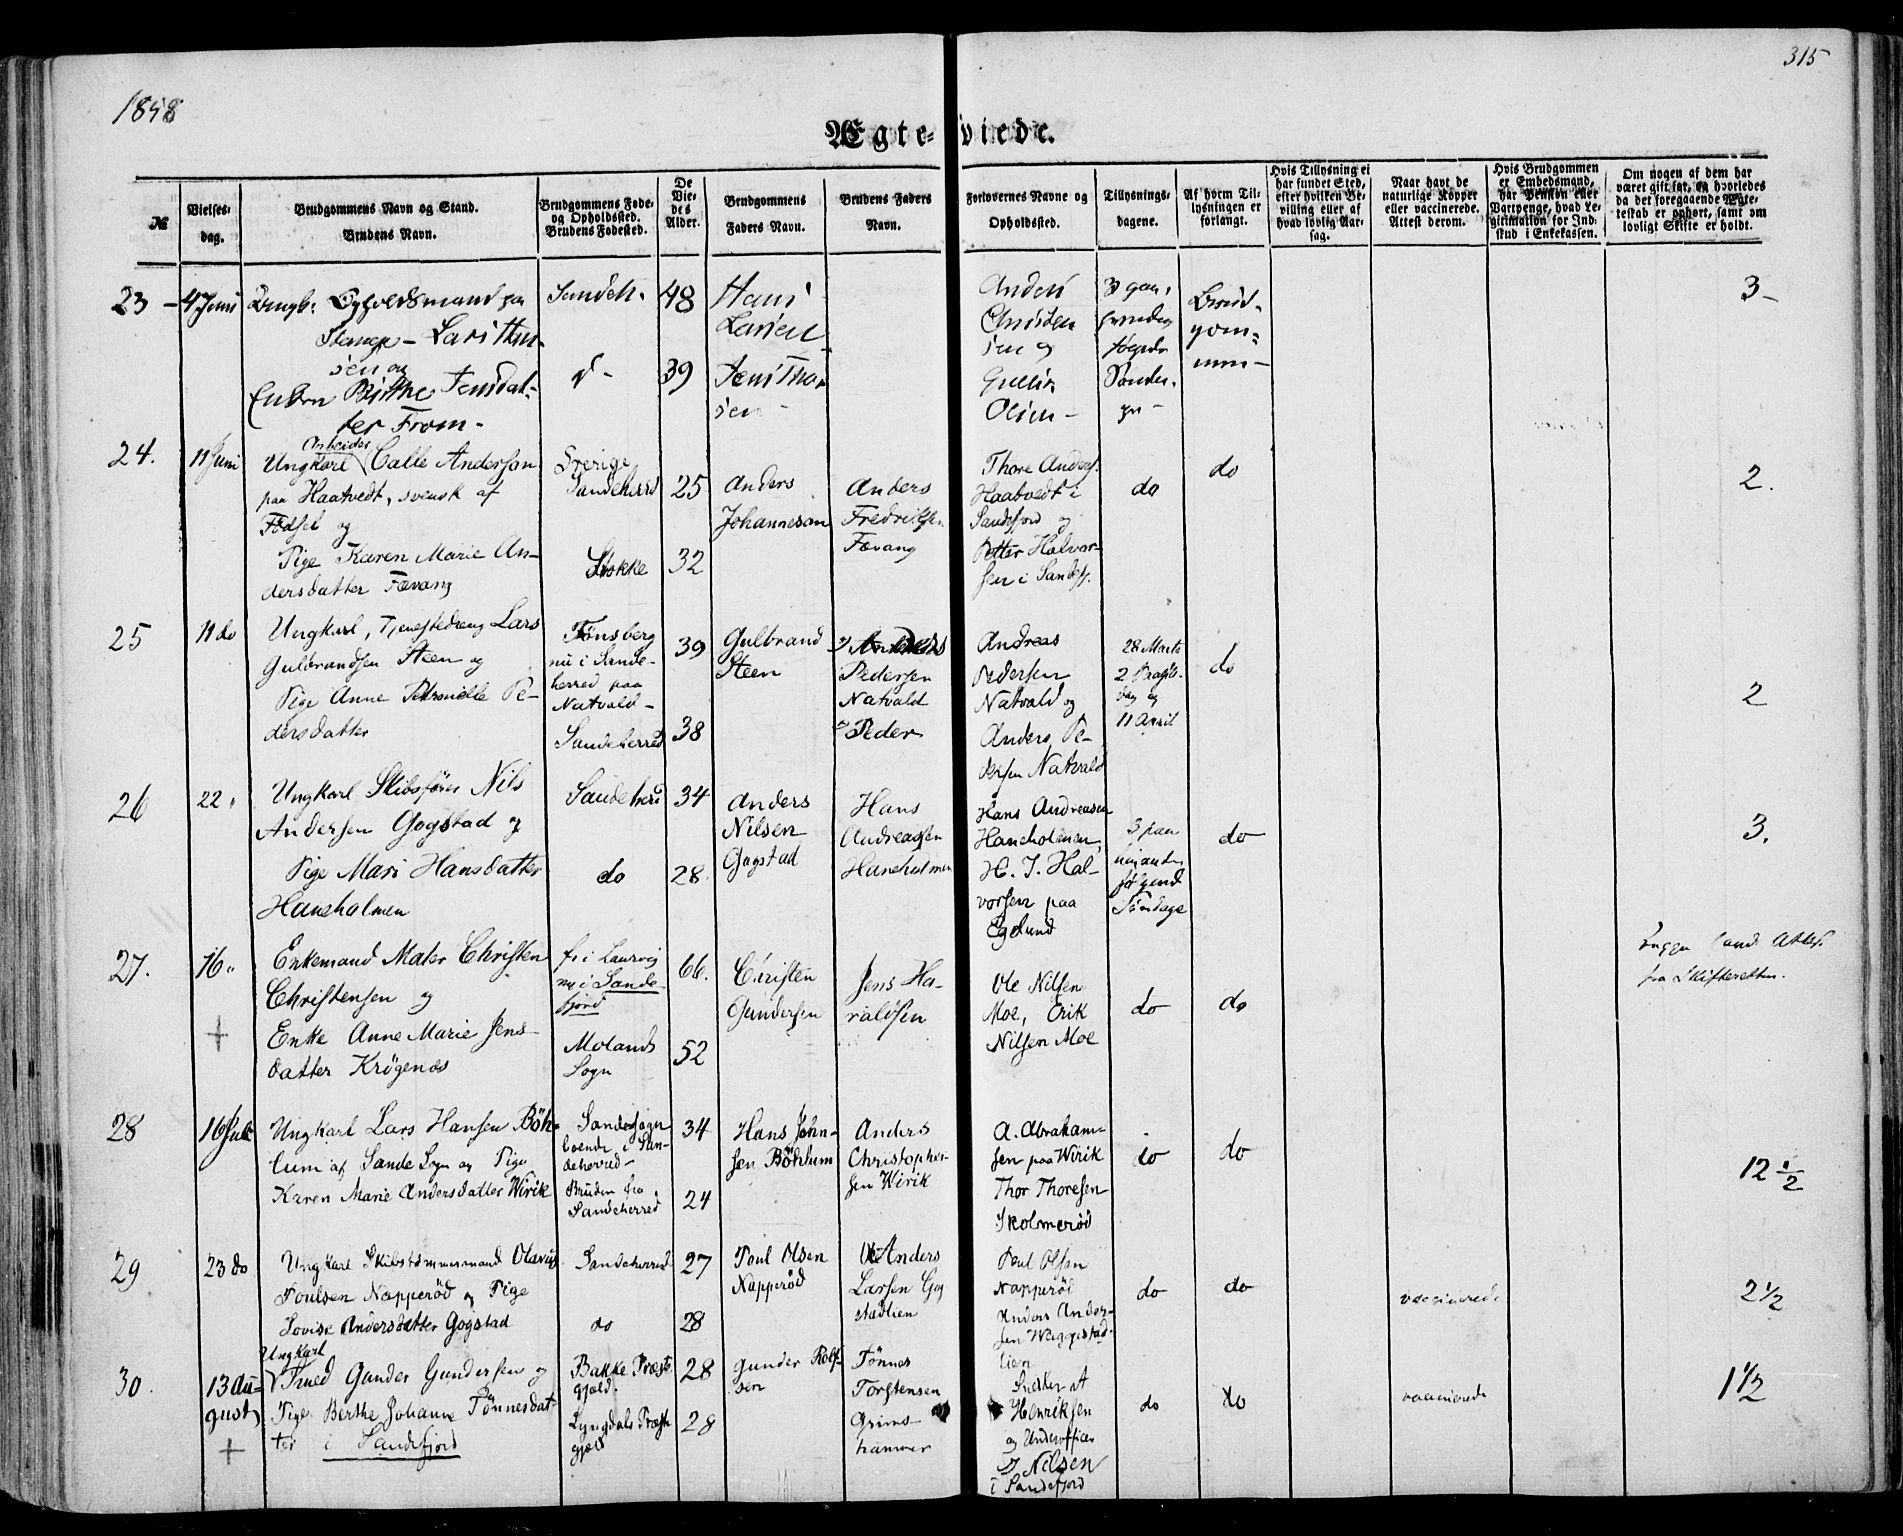 315
1858
Ægte-viede.
№
Vielses-
dag.
Brudgommens Navn og Stand.
Brudens Navn.
Brudgommens Føde-
og Opholdssted.
Brudens Fødested.
De
Vie-
des
Alder.
Brudgommens
Faders Navn.
Brudens Faders
Navn.
Forlovernes Navne og
Opholdssted.
Tillysnings-
dagene.
Af hvem Til-
lysningen er
forlangt.
Hvis Tillysning ei
har fundet Sted,
efter hvilken Be-
villing eller af
hvad lovlig Aar-
sag.
Naar havt de
naturlige Kopper
eller vaccinerede.
Attest derom.
Hvis Brudgommen
er Embedsmand,
har Pension eller
Vartpenge, hvad Le-
gitimation for Ind-
skud i Enkekassen.
Om nogen af dem har
været gift før, og hvorledes
da det foregaaende Ægte-
skab er ophørt, samt om
lovligt Skifte er holdt.
23 - 4 Juni
Lars
sen og
Birthe Jensdat-
ter From -
Sandeh.
d -
48
39
Hans
Larsen
Jens Thor
sen -
Anders
Christen
sen og
Olsen -
3 paa
Brud-
gom-
men -
3 -
24.
11 Juni
Arbeider
Ungkarl Calle Anderson
paa Haatvedt, svensk af
Fødsel og
Pige Karen Marie An-
dersdatter Fævang
Sverige
Sandeherred
Stokke
25
32
Anders
Johanneson
Anders
Fredriksen
Fævang
Thore Anders.
Haatvedt i
Sandefjord og
Petter Halvor-
sen i Sandefj.
do
do
2.
25
11 do
Ungkarl, Tjenestedreng Lars
Gulbrandsen Steen og
Pige Anne Petronelle Pe-
dersdatter
Tønsberg
nu i Sande-
herred paa
Natvald -
Sandeherred
39
38
Gulbrand
Steen
Pedersen
Natvald
Peder
Andreas
Pedersen
Natvald og
Anders Pe-
dersen Natvald
28 Marts
2 Paaske-
dag og
11 April
do
2
26
22 "
Ungkarl Skibsfører Nils
Andersen Gogstad og
Pige Mari Hansdatter
Haneholmen
Sandeherr
do
34
28.
Anders
Nilsen
Gogstad
Hans
Andreassen
Haneholmen
Hans Andreasen
Haneholmen,
H. J. Hal-
vorsen paa
Egelund
3 paa
hinanden
følgende
Søndage
do
3.
27.
16 "
+
Enkemand Mater Christen
Christensen og
Enke Anne Marie Jens-
datter Krøgenæs
fr i Laurvig
nu i Sande-
fjord
Molands
Sogn
66.
52
Christen
Gundersen
Jens Ha-
raldsen
Ole Nilsen
Moe, Erik
Nilsen Moe
do
do
fra Skifteretten.
28
16 Juli
Ungkarl Lars Hansen Böh-
lum af Sande Sogn og Pige
Karen Marie Andersdatter Wirik
Sandesogn
boende i San-
deherred -
Bruden fra
Sandeherred
34
24
Hans John-
sen Böhlum
Anders
Christopher-
sen Wirik
A. Abraham-
sen paa Wirik
Thor Thoresen
Skolmerød
do
do
12 1/2
29
23 do
Ungkarl Skibstømmermand Olavus
Poulsen Napperød og Pige
Lovise Andersdatter Gogstad
Sandeherred
do
27
28
Poul Olsen
Napperød
Anders
Larsen Gog
stadlien
Poul Olsen
Napperød
Anders Ander-
sen Weggestad-
lien
do
do
vaccinerede
2 1/2
30.
13 Au-
gust
+
Ungkarl
Tved Gunder Gundersen og
Pige Berthe Johanne Tönnesdat-
ter i Sandefjord
Bakke Præste
gjeld.
Lyngdals Præste
gjeld
28
28
Gunder Rolf-
sen
Tönnes
Torstensen
Grims-
hammer
Snedker A
Henriksen
og Underofficer
Nilsen
i Sandefjord
do
do
vaccinerede
1 1/2